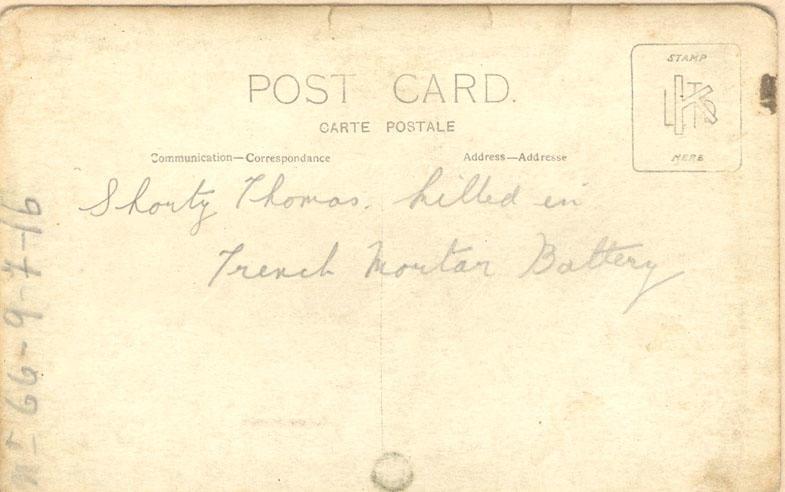 POST CARD.
CARTE POSTALE
Communication—Correspondance
Address—Addresse
STAMP
HERE
Shorty Thomas. killed in
Trench Mortar Battery
66-9-7-16